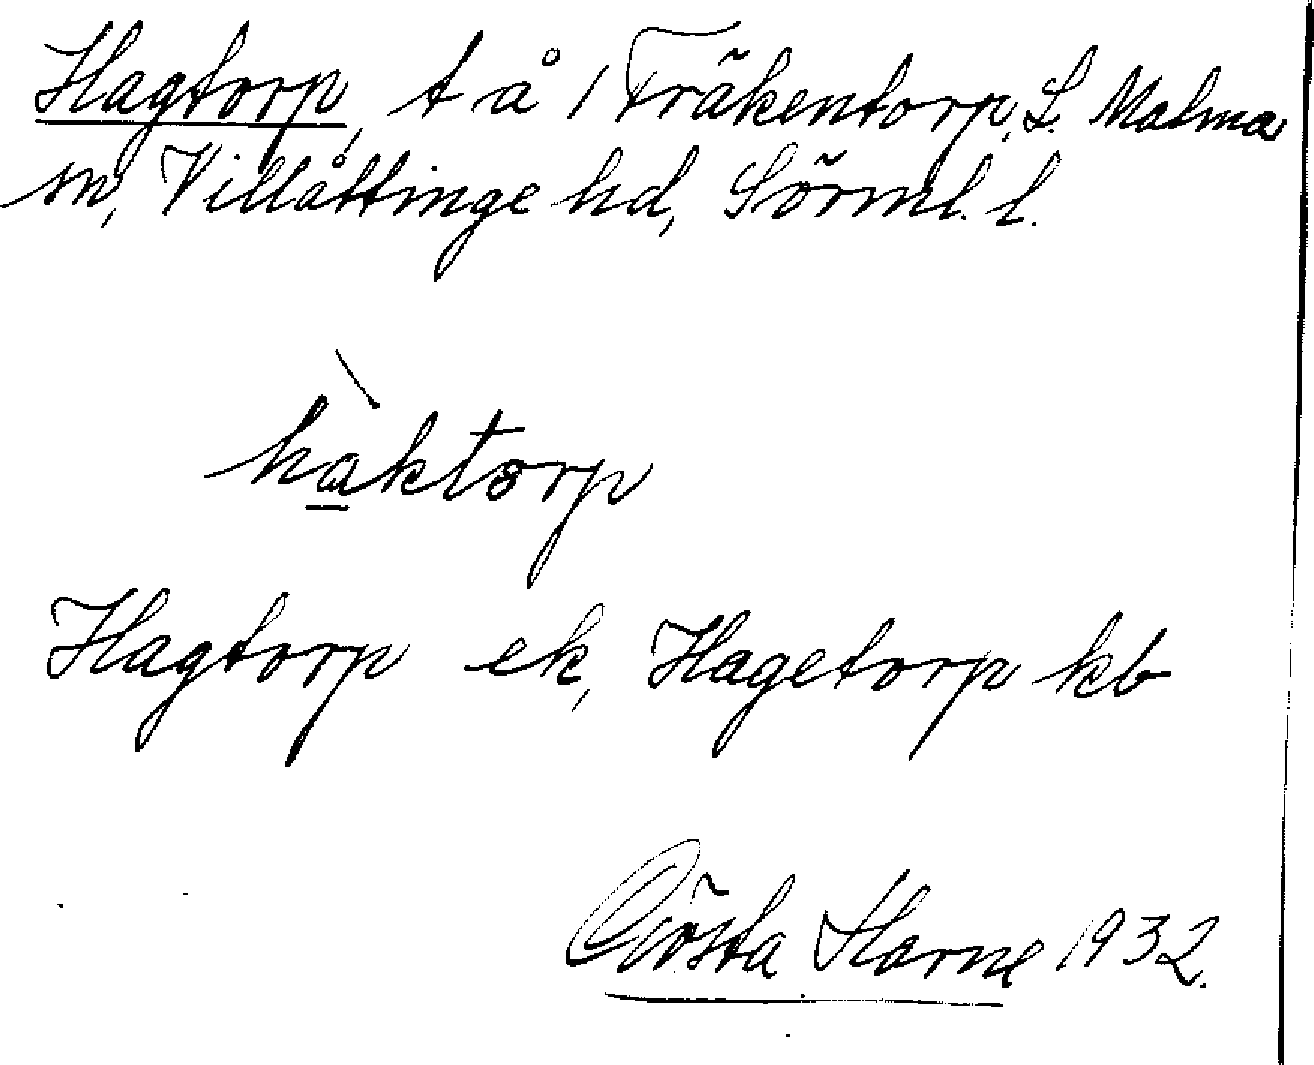 Hagtorp, t å 1 Fräkentorp, L. Malma
sn, Villåttinge hd, Sörml. l.
hàktorp
Hagtorp ek, Hagetorp kb
Gösta Harne 1932.